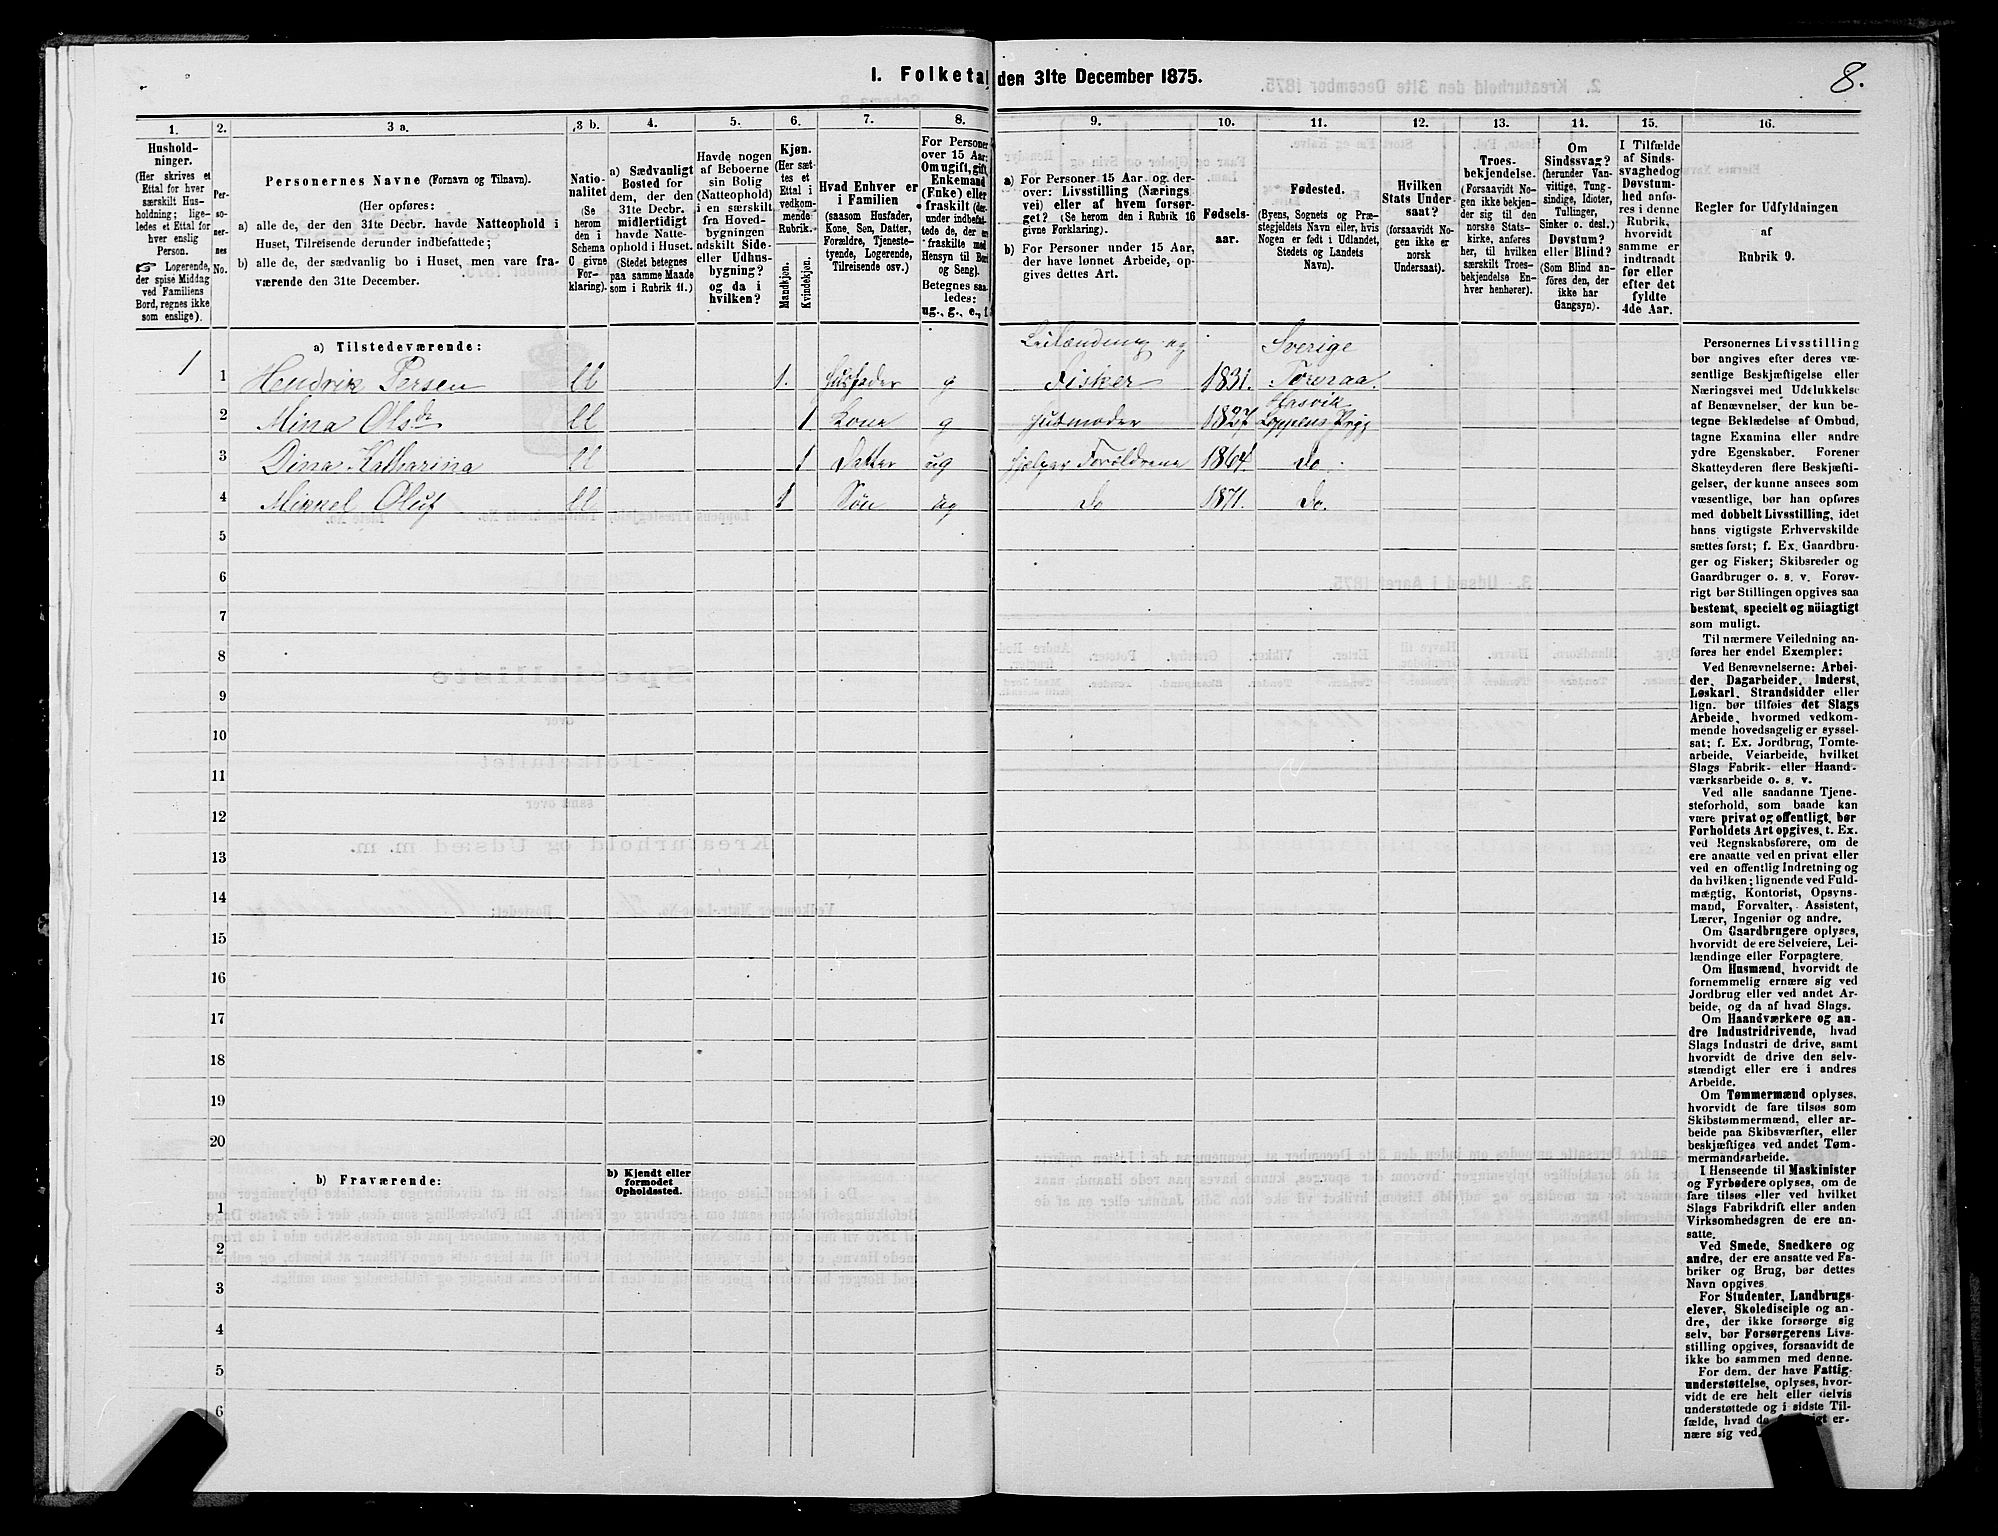 1. Folketal den 31te December 1875.
8.
1.
Hushold-
ninger.
(Her skrives et
Ettal for hver
særskilt Hus-
holdning; lige-
ledes et Ettal for
hver enslig
Person.
Logerende,
der spise Middag
ved Familiens
Bord, regnes ikke
som enslige).
2.
Per-
sone-
nes
No.
3 a.
Personernes Navne (Fornavn og Tilnavn).
(Her opføres:
a) alle de, der den 31te Decbr. havde Natteophold i
Huset, Tilreisende derunder indbefattede;
b) alle de, der sædvanlig bo i Huset, men vare fra-
værende den 31te December.
3 b.
Natio-
nalitet
(Se
herom
den i
Schema
C givne
For-
klaring).
4.
a) Sædvanligt
Bosted for
dem, der den
31te Decbr.
midlertidigt
havde Natte-
ophold i Huset.
(Stedet betegnes
paa samme Maade
som i Rubrik 11.)
5.
Havde nogen
af Beboerne
sin Bolig
(Natteophold)
i en særskilt
fra Hoved-
bygningen
adskilt Side-
eller Udhus-
bygning?
og da i
hvilken?
6.
Kjøn.
(Her sæt-
tes et
Ettal i
vedkom-
mende
Rubrik.)
Mandkjøn.
Kvindekjøn.
7.
Hvad Enhver er
i Familien
(saasom Husfader,
Kone, Søn, Datter,
Forældre, Tjeneste-
tyende, Logerende,
Tilreisende osv.).
8.
For Personer
over 15 Aar:
Om ugift, gift,
Enkemand
(Enke) eller
fraskilt (der-
under indbefat-
tede de, der ere
fraskilte med
Hensyn til Bord
og Seng).
Betegnes saa-
ledes:
ug., g., e., f.
9.
a) For Personer 15 Aar og der-
over: Livsstilling (Nærings
vei) eller af hvem forsør-
get? (Se herom den i Rubrik 16
givne Forklaring).
b) For Personer under 15 Aar,
der have lønnet Arbeide, op-
gives dettes Art.
10.
Fødsels-
aar.
11.
Fødested.
(Byens, Sognets og Præ-
stegjeldets Navn eller, hvis
Nogen er født i Udlandet,
Stedets og Landets
Navn).
12.
Hvilken
Stats Under
saat?
(forsaavidt No-
gen ikke er
norsk
Undersaat).
13.
Troes-
bekjendelse.
(Forsaavidt No-
gen ikke bekjen-
der sig til den
norske Stats-
kirke, anføres
her, til hvilken
særskilt Troes-
bekjendelse En-
hver henhører).
14.
Om
Sindssvag?
(herunder Van-
vittige, Tung-
sindige, Idioter,
Tullinger,
Sinker o. desl.)
Døvstum?
eller Blind?
(Som Blind an-
føres den, der
ikke har
Gangsyn).
15.
I Tilfælde
af Sinds-
svaghed og
Døvstum-
hed anfø-
res i denne
Rubrik,
hvorvidt
samme er
indtraadt
før eller
efter det
fyldte
4de Aar.
16.
Regler for Udfyldningen
af
Rubrik 9.
a) Tilstedeværende:
1 1 Hendrik Persen ll 1. Husfader g Leilænding og Fisker 1831. Sverige Torneaa.
2 Mina Olsdr ll 1 Kone g Husmoder 1827 Hasvik Loppens Prgj
3 Dina Katharina ll 1 Datter ug hjelper Forældrene 1864 Do.
4 Mikkel Oluf ll 1 Søn ug Do 1871. Do.
5
6
7
8
9
10
11
12
13
14
15
16
17
18
19
20
b) Fraværende:
b) Kjendt eller
formodet
Opholdssted.
1
2
3
4
5
6
Personernes Livsstilling
bør angives efter deres væ-
sentlige Beskjæftigelse eller
Næringsvei med Udelukkelse
af Benævnelser, der kun be-
tegne Beklædelse af Ombud,
tagne Examina eller andre
ydre Egenskaber. Forener
Skatteyderen flere Beskjæfti-
gelser, der kunne ansees som
væsentlige, bør han opføres
med dobbelt Livsstilling, idet
hans vigtigste Erhvervskilde
sættes først; f. Ex. Gaardbru-
ger og Fisker; Skibsreder og
Gaardbruger o. s. v. Forøv-
rigt bør Stillingen opgives saa
bestemt, specielt og nøiagtigt
som muligt.
Til nærmere Veiledning an-
føres her endel Exempler:
Ved Benævnelserne: Arbei-
der, Dagarbeider, Inderst,
Løskarl, Strandsidder eller
lign. bør tilføies det Slags
Arbeide, hvormed vedkom-
mende hovedsagelig er syssel-
sat; f. Ex. Jordbrug, Tomte-
arbeide, Veiarbeide, hvilket
Slags Fabrik- eller Haand-
værksarbeide o. s. v.
Ved alle saadanne Tjene-
steforhold, som baade kan
være privat og offentligt, bør
Forholdets Art opgives, t. Ex.
ved Regnskabsførere, om de
ere ansatte ved en privat eller
ved en offentlig Indretning og
da hvilken; lignende ved Fuld-
mægtig, Kontorist, Opsyns-
mand, Forvalter, Assistent,
Lærer, Ingeniør og andre.
Om Gaardbrugere oplyses,
hvorvidt de ere Selveiere, Lei-
lændinge eller Forpagtere.
Om Husmænd, hvorvidt de
fornemmelig ernære sig ved
Jordbrug eller ved andet Ar-
beide, og da af hvad Slags.
Om Haandværkere og an-
dre Industridrivende, hvad
Slags Industri de drive, samt
hvorvidt de drive den selv-
stændigt eller ere i andres
Arbeide.
Om Tømmermænd oplyses,
hvorvidt de fare tilsøs som
Skibstømmermænd, eller ar-
beide paa Skibsværfter, eller
beskjæftiges ved andet Tøm-
mermandsarbeide.
I Henseende til Maskinister
og Fyrbødere oplyses, om de
fare tilsøs eller ved hvilket
Slags Fabrikdrift eller anden
Virksomhedsgren de ere an-
satte.
Ved Smede, Snedkere og
andre, der ere ansatte ved Fa-
briker og Brug, bør dettes
Navn opgives.
For Studenter, Landbrugs-
elever, Skoledisciple og an-
dre, der ikke forsørge sig
selv, bør Forsørgerens Livs-
stilling opgives, forsaavidt de
ikke bo sammen med denne.
For dem, der have Fattig-
understøttelse, oplyses, hvor-
vidt de ere helt eller delvis
understøttede og i sidste Til-
fælde, hvad de forøvrigt er-
nære sig ved.